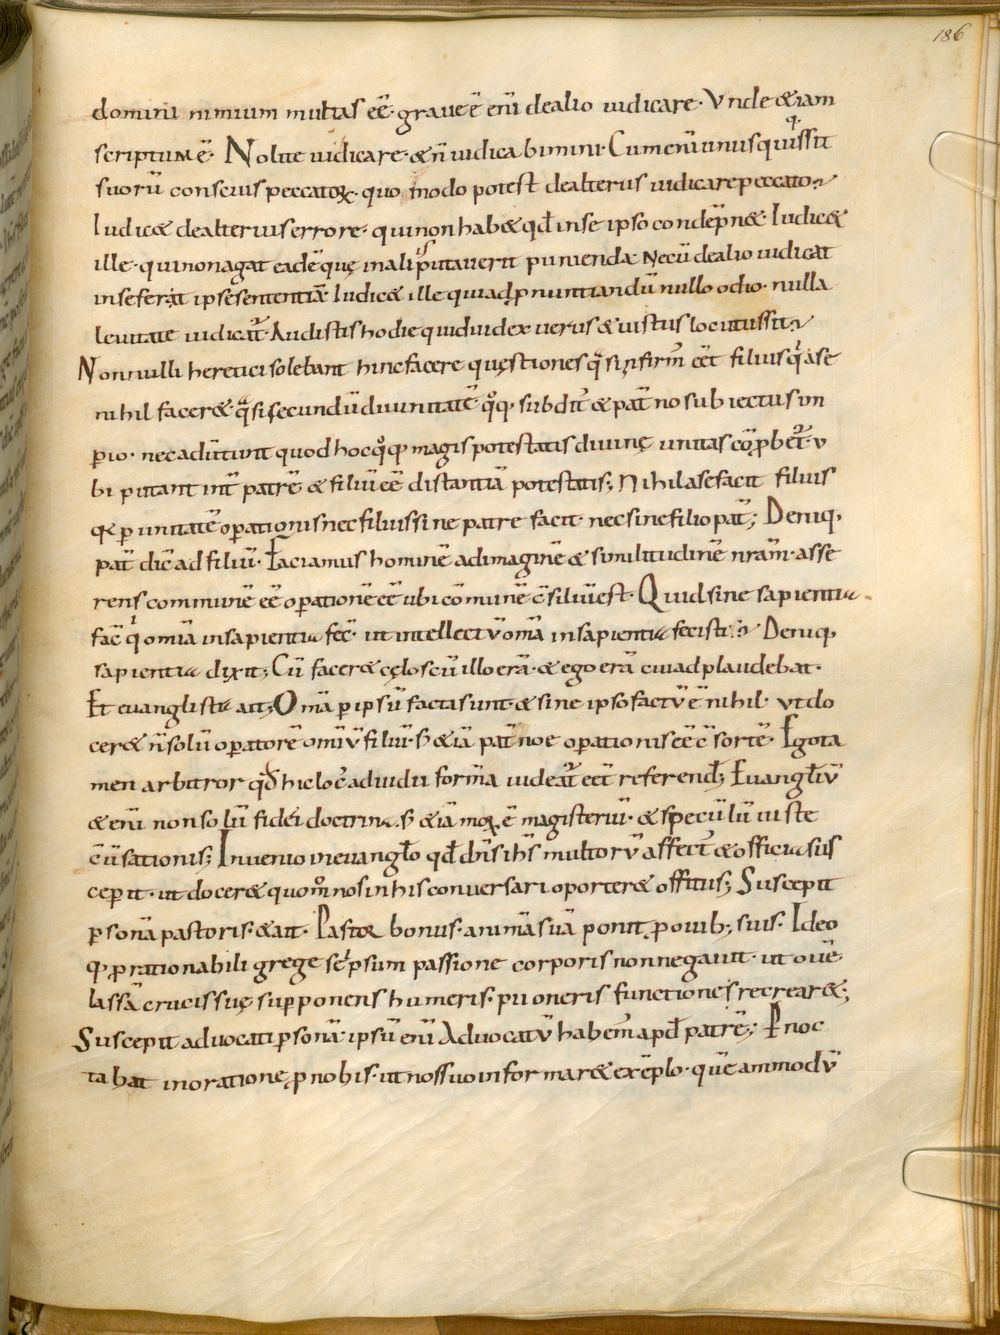 186
domini nimium multas eē· graue ē eni̅ de alio iudicare· Vnde & iam
scriptum ē· Nolite iudicare· & n̅ iudicabimini· Cum eni̅ unusquisq; sit
suorū conscius peccatoꝝ· quo modo potest de alterius iudicare peccato?
Iudic& de alterius errore· qui non hab& qđ in se ipso condēpn&· Iudic&
ille· qui non agat eadē quę in alio putauerit punienda· Ne cū de alio iudicat
in se ferat ipse sententiā· Iudic& ille qui ad ꝓnuntiandū nullo odio· nulla
leuitate iudicat̅· Audistis hodie quid iudex uerus & iustus locutus sit?
Non nulli heretici solebant hinc facere quęstiones qᷓsi infirm̅ eēt filius qͥ a se
nihil facer& qᷓsi secundū diuinitatē qͦq· subdit̅ & pat̅no subiectus im
ꝑio· nec aduertunt quod hoc qͦqꝫ magis potestatis diuinę unitas cōꝓbet̅· v
bi putant int̅ patrē & filiū eē distantiā potestatis; Nihil a se facit filius
qꝫ ꝑ unitatē oꝑationis nec filius sine patre facit· nec sine filio pat̅; Deniq·
pat̅ dic̅ ad filiū· Faciamus hominē ad imaginē & similitudinē nr̅am· asse
rens communē eē oꝑationē eē ubi cōmunē c̄siliū est· Quid sine sapientia
fac̅ qͥ om̅ia in sapientia fec̅· ut intellectū om̅a in sapientia fecisti? Deniq·
sapientia dixit; Cū facer& cęlos cū illo erā· & ego erā cui adplaudebat·
Et euanglista ait; Om̅a ꝑ ipsū facta sunt· & sine ipso factū ē nihil· vt do
cer& n̅ solū oꝑatorē om̅iū filiū· s; & iā pat̅noe oꝑationis eē c̄sortē· Ego ta
men arbitror qđ hic loc̅ ad iudicii formā uideat̅ eēt referendꝰ; Euangliū
& eni̅ non solū fidei doctrina· s; & iā moꝝ ē magisteriū· & speculū iuste
c̄uersationis; Inuenio in euanglo qđ dn̄s ih̅s multorū affect̅ & officia sus
ceperit· ut docer& quom̊ nos in his conuersari oporter& offitiis; Suscepit
ꝑsonā pastoris· & ait· Pastor bonus· animā suā ponit ꝓ ouib; suis· Ideo
qꝫ ꝓ rationabili grege se ipsum passione corporis non negauit· ut ouē
lassā crucis suę supponens humeris· pii oneris functione recrear&;
Suscepit aduocati ꝑsonā· ipsū eni̅ Aduocatū habem̅ apđ patrē; Ꝑnoc
tabat in oratione ꝓ nobis· ut nos suo informar& exēplo· quēammodū